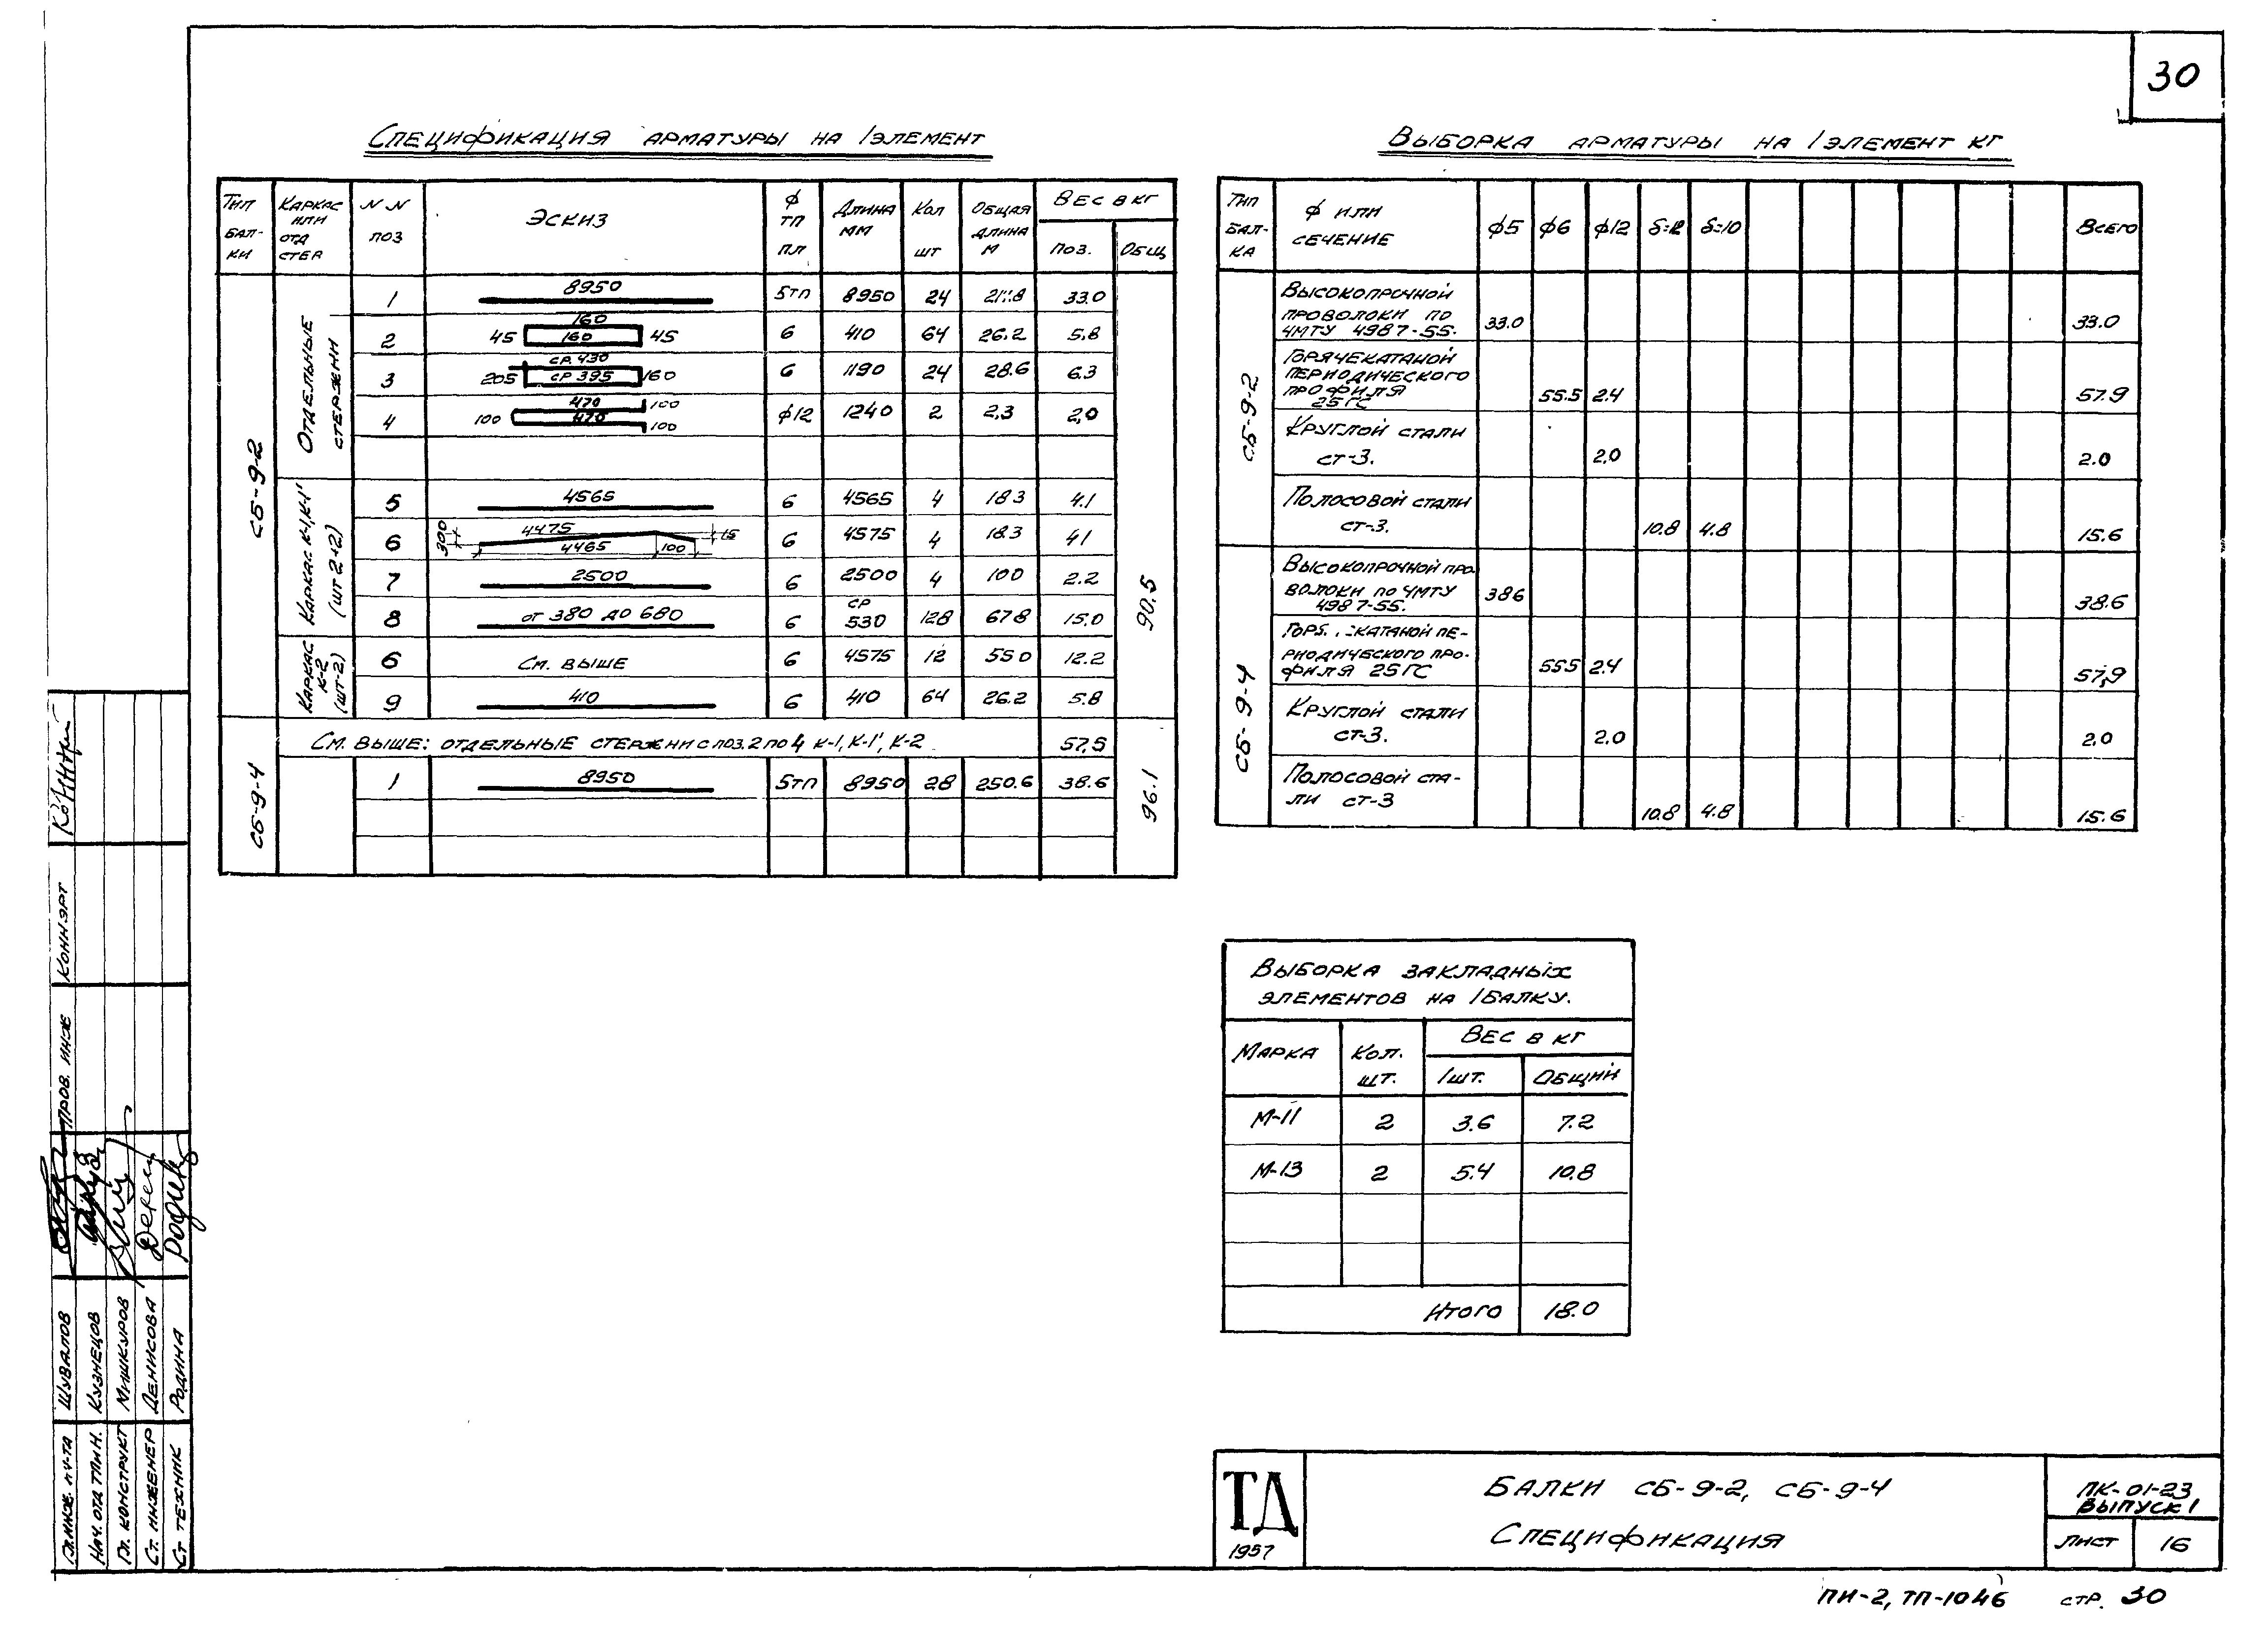 30
Спецификация арматуры на 1 элемент
Тип бал- ки | Каркас или отд стер | N N поз | Эскиз | ф тп пл | Длина мм | Кол шт | Общая длина м | Вес в кг
поз. | Общ
СБ-9-2
Отдельные стержни
1 | 8950 | 5тп | 8950 | 24 | 33.0
2 | 45 160 160 45 | 6 | 410 | 64 | 26.2 | 5.8
3 | 205 ср. 430 ср 395 160 | 6 | 1190 | 24 | 28.6 | 6.3
4 | 100 470 470 100 100 | ф12 | 1240 | 2 | 2,3 | 2,0
Каркас К-1, К-1' (шт 2+2)
5 | 4565 | 6 | 4565 | 4 | 18 3 | 4.1
6 | 300 4475 4465 100 15 | 6 | 4575 | 4 | 18.3 | 4 1
7 | 2500 | 6 | 2500 | 4 | 10 0 | 2.2
8 | от 380 до 680 | 6 | ср 530 | 128 | 67 8 | 15.0
Каркас К-2 (шт-2)
6 | См. выше | 6 | 4575 | 12 | 55 0 | 12.2
9 | 410 | 6 | 410 | 64 | 26.2 | 5.8
90.5
СБ-9-4
См. выше: отдельные стержни с поз. 2 по 4 К-1, К-1', К-2 | 57,5
1 | 8950 | 5тп | 8950 | 28 | 250.6 | 38.6
96.1
Выборка арматуры на 1 элемент кг
Тип бал- ка | ф или сечение | ф5 | ф6 | ф12 | δ=12 | δ=10 | Всего
СБ-9-2
Высокопрочной
проволоки по
ЧМТУ 4987-55. | 33.0 | 33.0
Горячекатаной
периодического
профиля
25ГС | 55.5 | 2.4 | 57.9
Круглой стали
ст-3. | 2.0 | 2.0
Полосовой стали
ст-3. | 10.8 | 4.8 | 15.6
СБ-9-4
Высокопрочной про
волоки по ЧМТУ
4987-55. | 38 6 | 38.6
катаной пе-
риодического про-
филя 25ГС | 55 5 | 2.4 | 57,9
Круглой стали
ст-3. | 2.0 | 2.0
Полосовой ста-
ли ст-3 | 10.8 | 4.8 | 15.6
Выборка закладных
элементов на 1 балку.
Марка | Кол. шт. | Вес в кг
1 шт. | Общий
М-11 | 2 | 3.6 | 7.2
М-13 | 2 | 5.4 | 10.8
Итого | 18.0
Коннэрт
Пров. инж
Гл. инж. ин-та Шувалов
Нач. отд тпин. Кузнецов
Гл. конструкт Мишкуров
Ст. инженер Денисова
Ст техник Родина
ТД
1957
Балки СБ-9-2, СБ-9-4
Спецификация
ПК-01-23
Выпуск 1
Лист 16
ПИ-2, ТП-1046 стр. 30